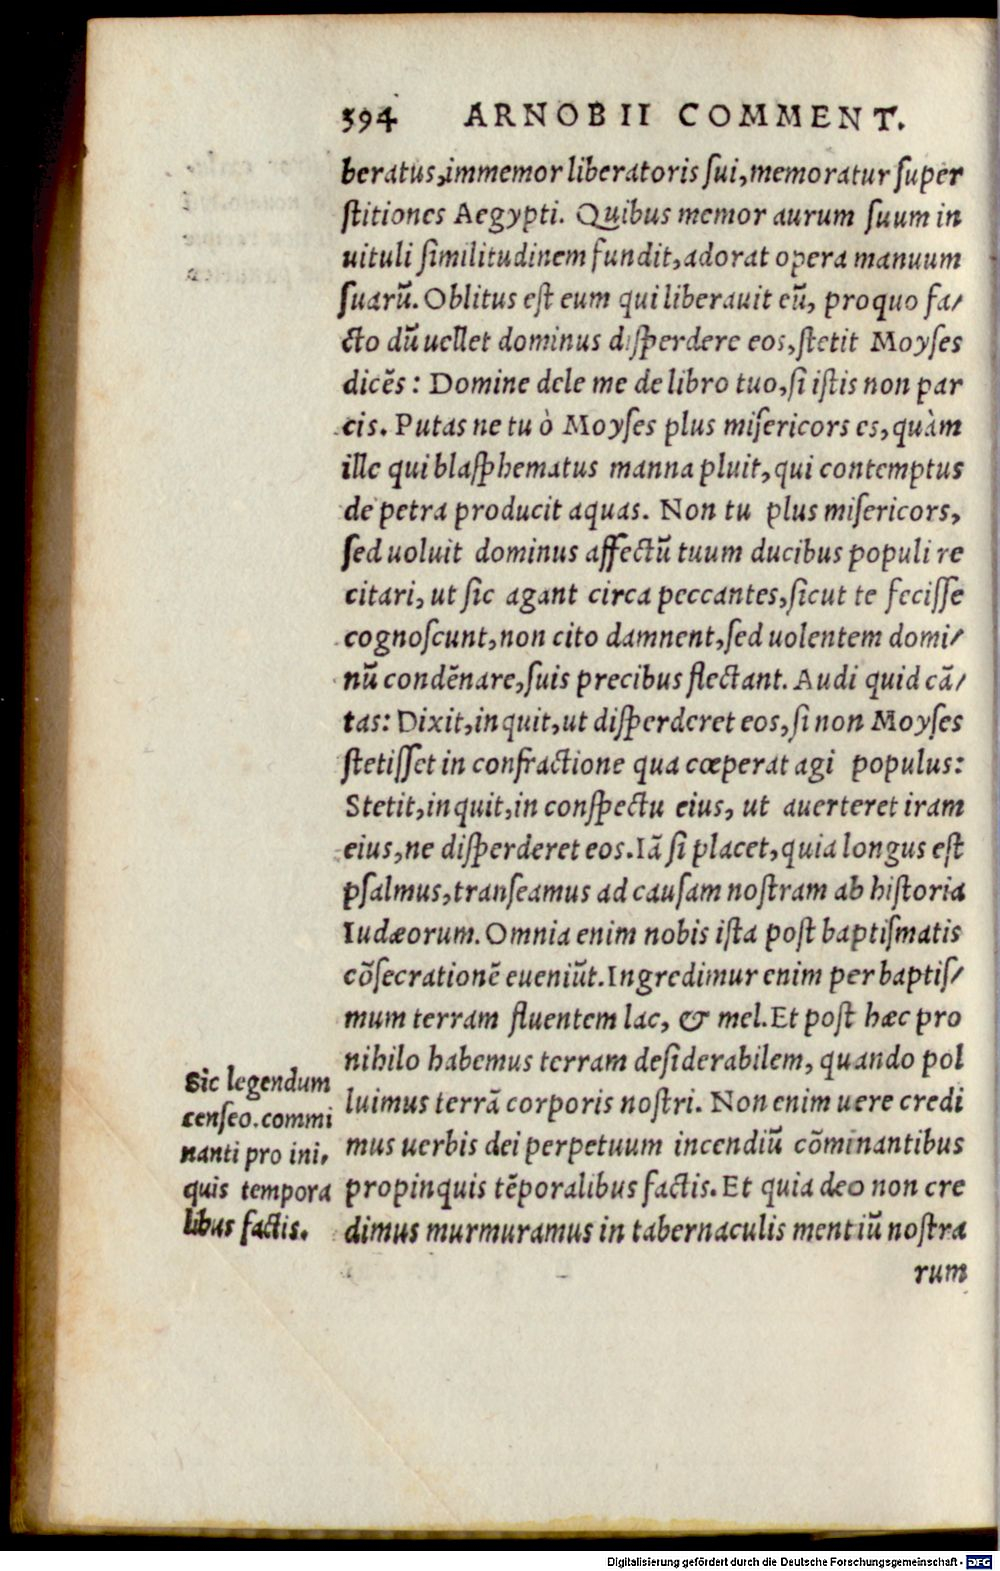 394 ARNOBII COMMENT.
beratus, immemor liberatoris sui, memoratur super
stitiones Aegypti. Quibus memor aurum suum in
uituli similitudinem fundit, adorat opera manuum
suarũ. Oblitus est eum qui liberauit eũ, pro quo fa/
cto dũ uellet dominus disperdere eos, stetit Moyses
dicẽs: Domine dele me de libro tuo, si istis non par
cis. Putas ne tu ò Moyses plus misericors es, quàm
ille qui blasphematus manna pluit, qui contemptus
de petra producit aquas. Non tu plus misericors,
sed uoluit dominus affectũ tuum ducibus populi re
citari, ut sic agant circa peccantes, sicut te fecisse
cognoscunt, non cito damnent, sed uolentem domi/
nũ condẽnare, suis precibus flectant. Audi quid cã/
tas: Dixit, inquit, ut disperderet eos, si non Moyses
stetisset in confractione qua cœperat agi populus:
Stetit, inquit, in conspectu eius, ut auerteret iram
eius, ne disperderet eos. Iã si placet, quia longus est
psalmus, transeamus ad causam nostram ab historia
Iudæorum. Omnia enim nobis ista post baptismatis
cõsecrationẽ eueniũt. Ingredimur enim per baptis/
mum terram fluentem lac, & mel. Et post hæc pro
nihilo habemus terram desiderabilem, quando pol
luimus terrã corporis nostri. Non enim uere credi
mus uerbis dei perpetuum incendiũ cõminantibus
propinquis tẽporalibus factis. Et quia deo non cre
dimus murmuramus in tabernaculis mentiũ nostra
rum
Sic legendum
censeo. commi
nanti pro ini,
quis tempora
libus factis.
Digitalisierung gefördert durch die Deutsche Forschungsgemeinschaft - DFG